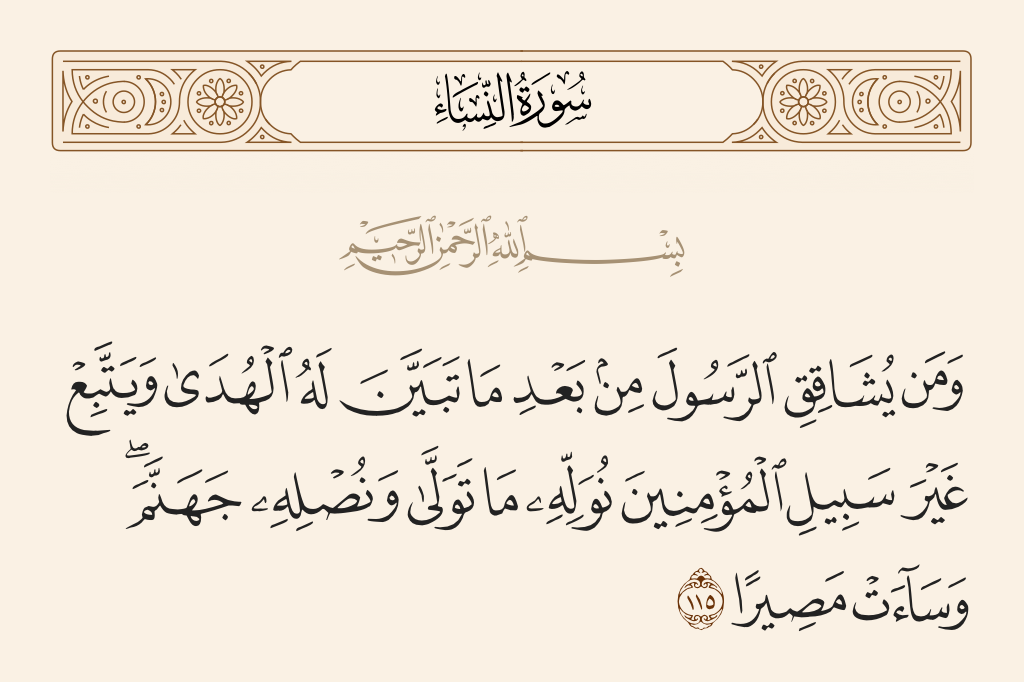 سُورَةُ النِّسَاءِ
بِسْمِ ٱللَّهِ ٱلرَّحْمَٰنِ ٱلرَّحِيمِ
وَمَن يُشَاقِقِ ٱلرَّسُولَ مِنۢ بَعْدِ مَا تَبَيَّنَ لَهُ ٱلْهُدَىٰ وَيَتَّبِعْ
غَيْرَ سَبِيلِ ٱلْمُؤْمِنِينَ نُوَلِّهِۦ مَا تَوَلَّىٰ وَنُصْلِهِۦ جَهَنَّمَ ۖ
وَسَآءَتْ مَصِيرًا ١١٥